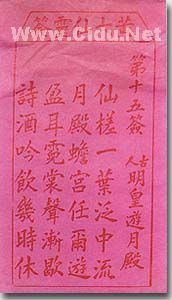 www.Cidu.Net
黃大仙靈簽
第十五簽
古人
明皇遊月殿
仙槎一葉泛中流
月殿蟾宮任爾遊
盈耳霓裳聲漸歇
詩酒吟飲幾時休